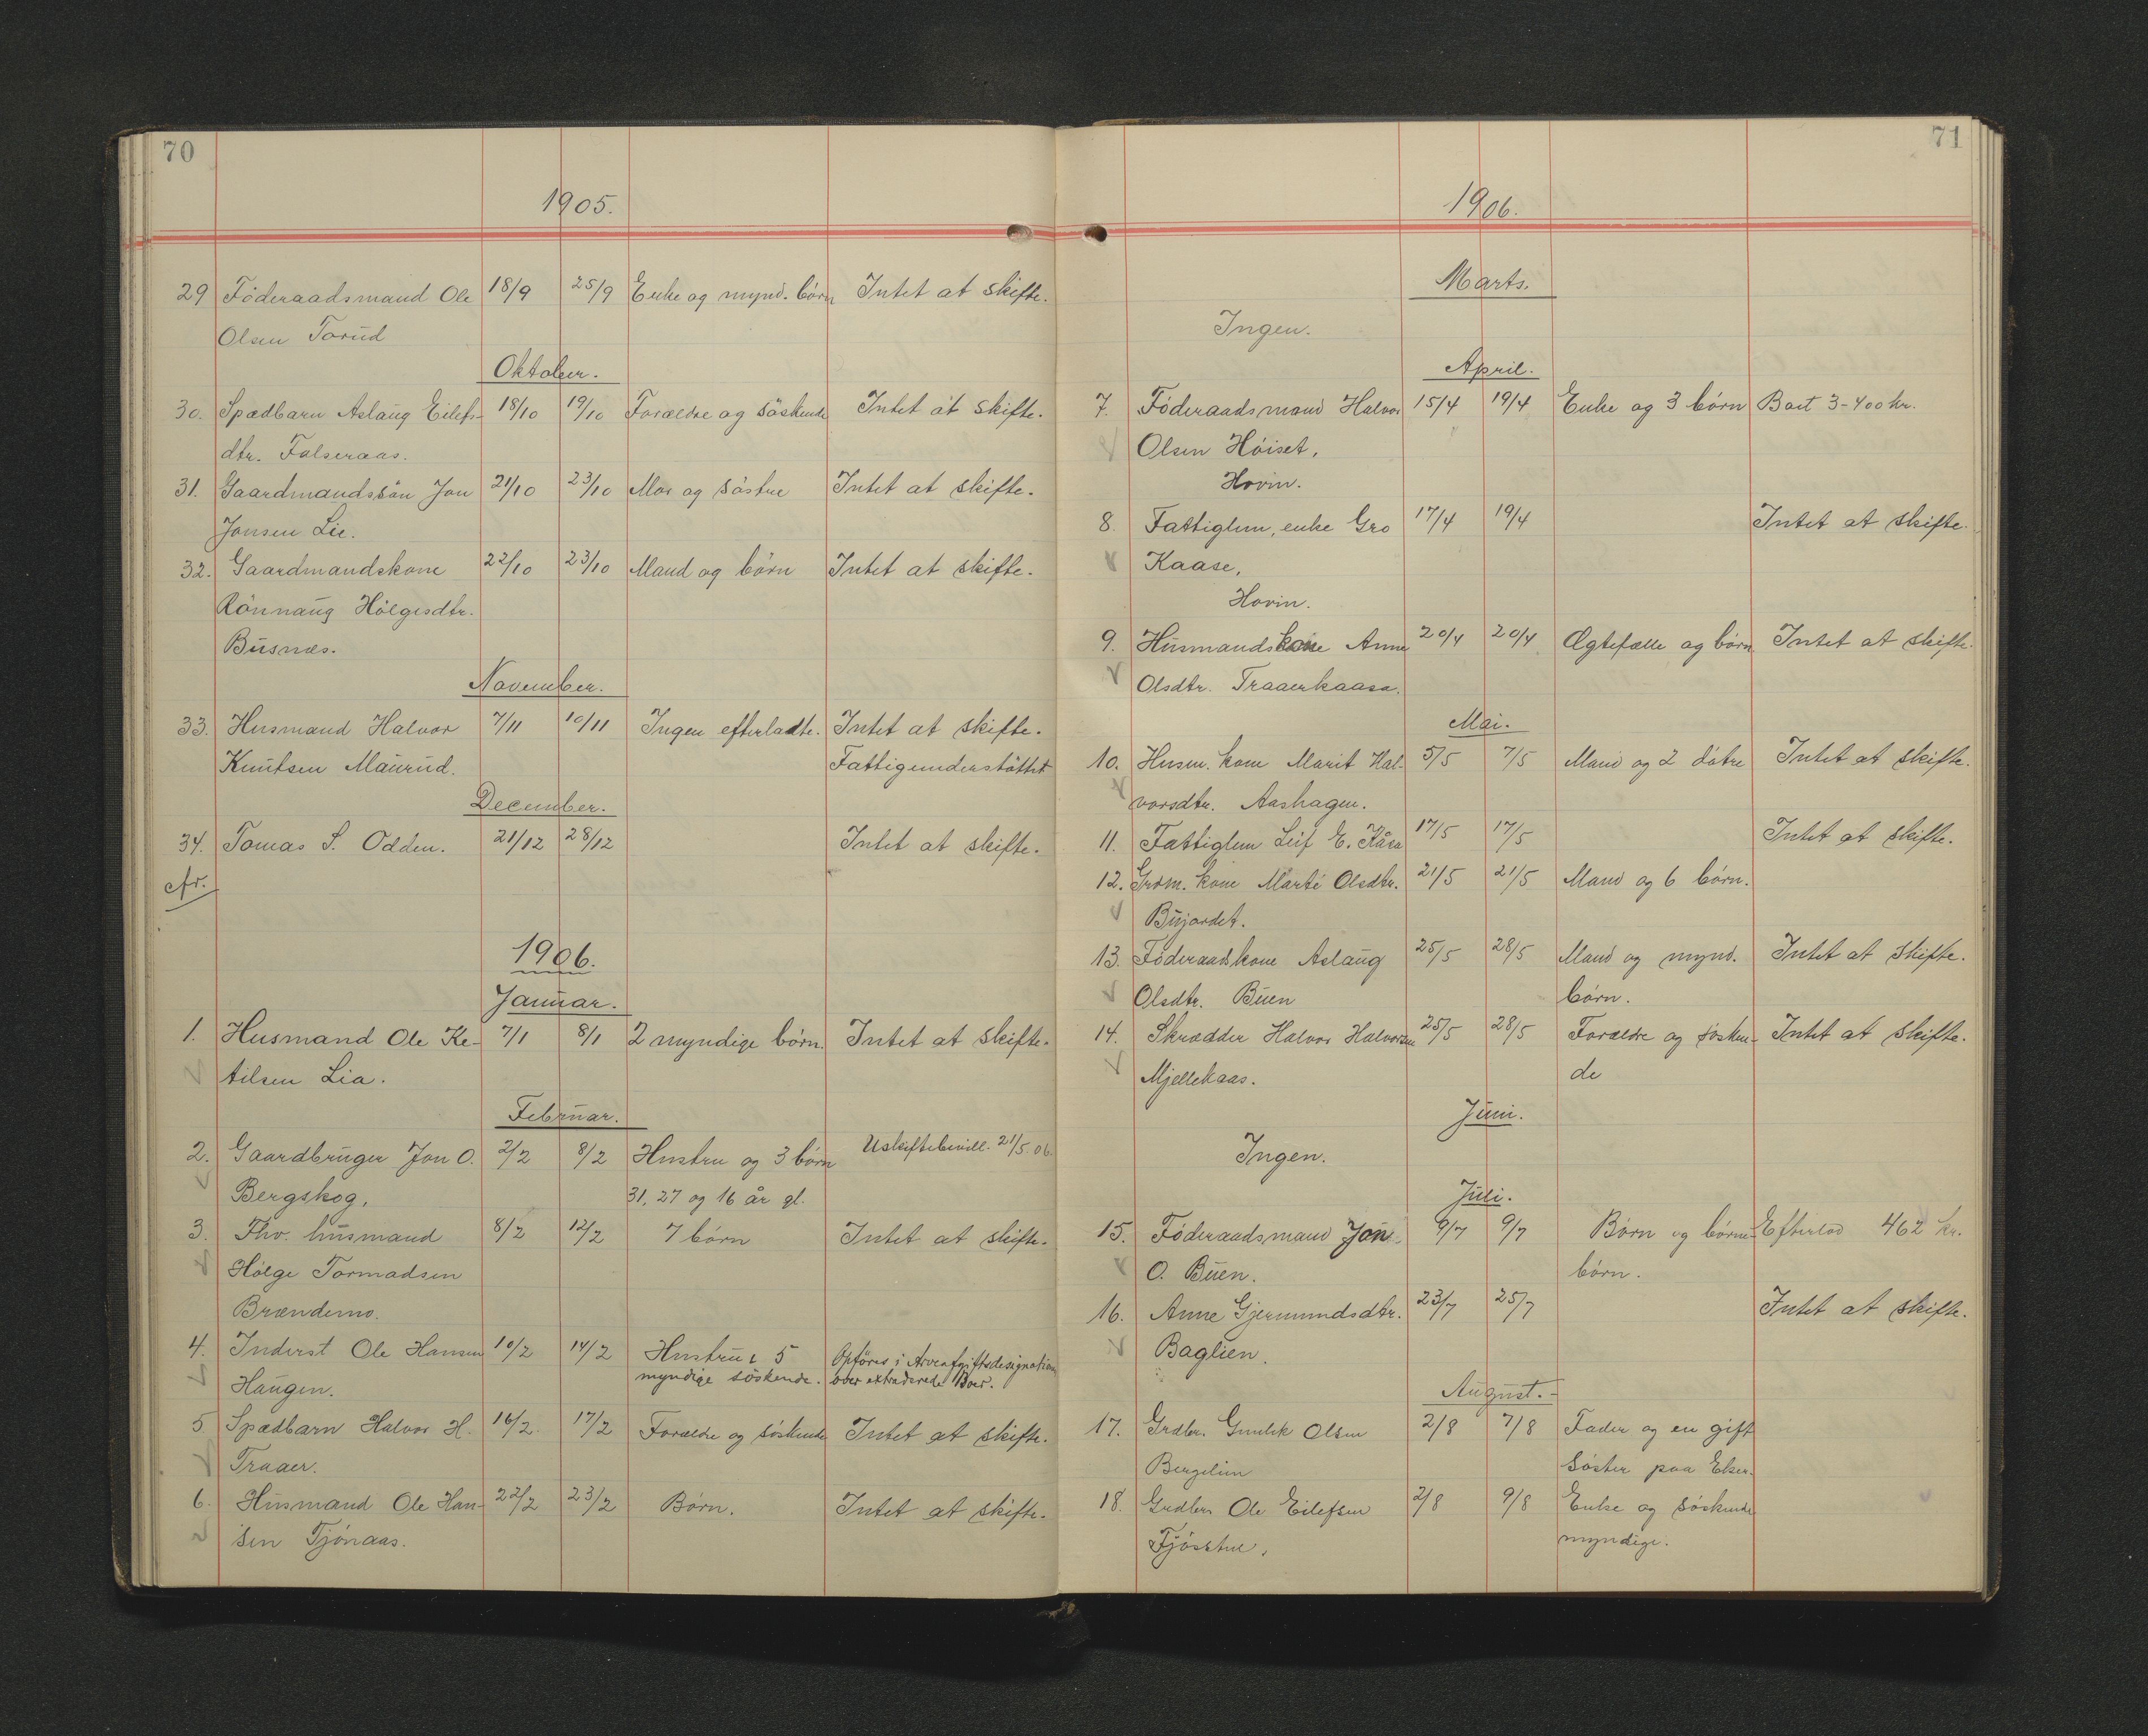 70
1905.
29 Föderaadsmand Ole 18/9 25/9 Enke og mynd. börn Intet at skifte.
Olsen Torud
Oktober.
30. Spædbarn Aslaug Eilefs- 18/10 19/10 Forældre og söskende Intet at skifte.
dtr. Falseraas.
31. Gaardmandssön Jon 21/10 23/10 Mor og söstre Intet at skifte.
Jonsen Lie.
32. Gaardmandskone 22/10 23/10 Mand og börn Intet at skifte.
Rönnaug Hölgesdtr.
Busnes.
November.
33. Husmand Halvor 7/11 10/11 Ingen efterladte. Intet at skifte.
Knutsen Maurud. Fattigunderstöttet
December.
34. Tomas S. Odden. 21/12 28/12 Intet at skifte.
cfr.
1906.
Januar.
1. Husmand Ole Ke- 7/1 8/1 2 myndige börn. Intet at skifte.
tilsen Lia.
Februar.
2. Gaardbruger Jon O. 2/2 8/2 Hustru og 3 börn Uskiftebevill. 21/5.06.
Bergskog, 31, 27 og 16 år gl.
3. Fhv. husmand 8/2 12/2 7 börn Intet at skifte.
Hölge Tormodsen
Brændemo.
4. Inderst Ole Hansen 10/2 14/2 Hustru & 5 Opföres i Arveafgiftsdesignation
Haugen. myndige söskende. over extraderede Boer.
5 Spædbarn Halvor H. 16/2. 17/2 Forældre og söskende Intet at skifte.
Traaer.
6. Husmand Ole Han- 22/2 23/2 Börn. Intet at skifte.
sen Tjönaas.
71
1906.
Marts.
Ingen.
April.
7. Föderaadsmand Halvor 15/4 19/4 Enke og 3 börn Boet 3-400 kr.
Olsen Höiset,
Hovin.
8. Fattiglem, enke Gro 17/4 19/4 Intet at skifte.
Kaase,
Hovin.
9. Husmandskone Anne 20/4 20/4 Ægtefælle og börn Intet at skifte.
Olsdtr. Traaerkaasa.
Mai.
10. Husm. kone Marit Hal- 5/5 7/5 Mand og 2 dötre Intet at skifte.
vorsdtr. Aashagen.
11. Fattiglem Leif E. Kåsa 17/5 17/5 Intet at skifte.
12. Grdm. kone Marte Olsdtr. 21/5 21/5 Mand og 6 börn.
Bujordet.
13. Föderaadskone Aslaug 25/5 28/5 Mand og mynd. Intet at skifte.
Olsdtr. Buen börn.
14. Skrædder Halvor Halvorsen 25/5 28/5 Forældre og sösken- Intet at skifte.
Mjellekaas. de
Juni.
Ingen.
Juli.
15. Föderaadsmand Jon 9/7 9/7 Börn og börne- Efterlod 462 kr.
O. Buen. börn.
16. Anne Gjermundsdtr. 23/7 25/7 Intet at skifte.
Baglien.
August.
17. Grdbr. Gunlek Olsen 2/8 7/8 Fader og en gift
Bergelien söster paa Eker.
18. Grdbr. Ole Eilefsen 2/8 9/8 Enke og söskende
Fjösstul, myndige.